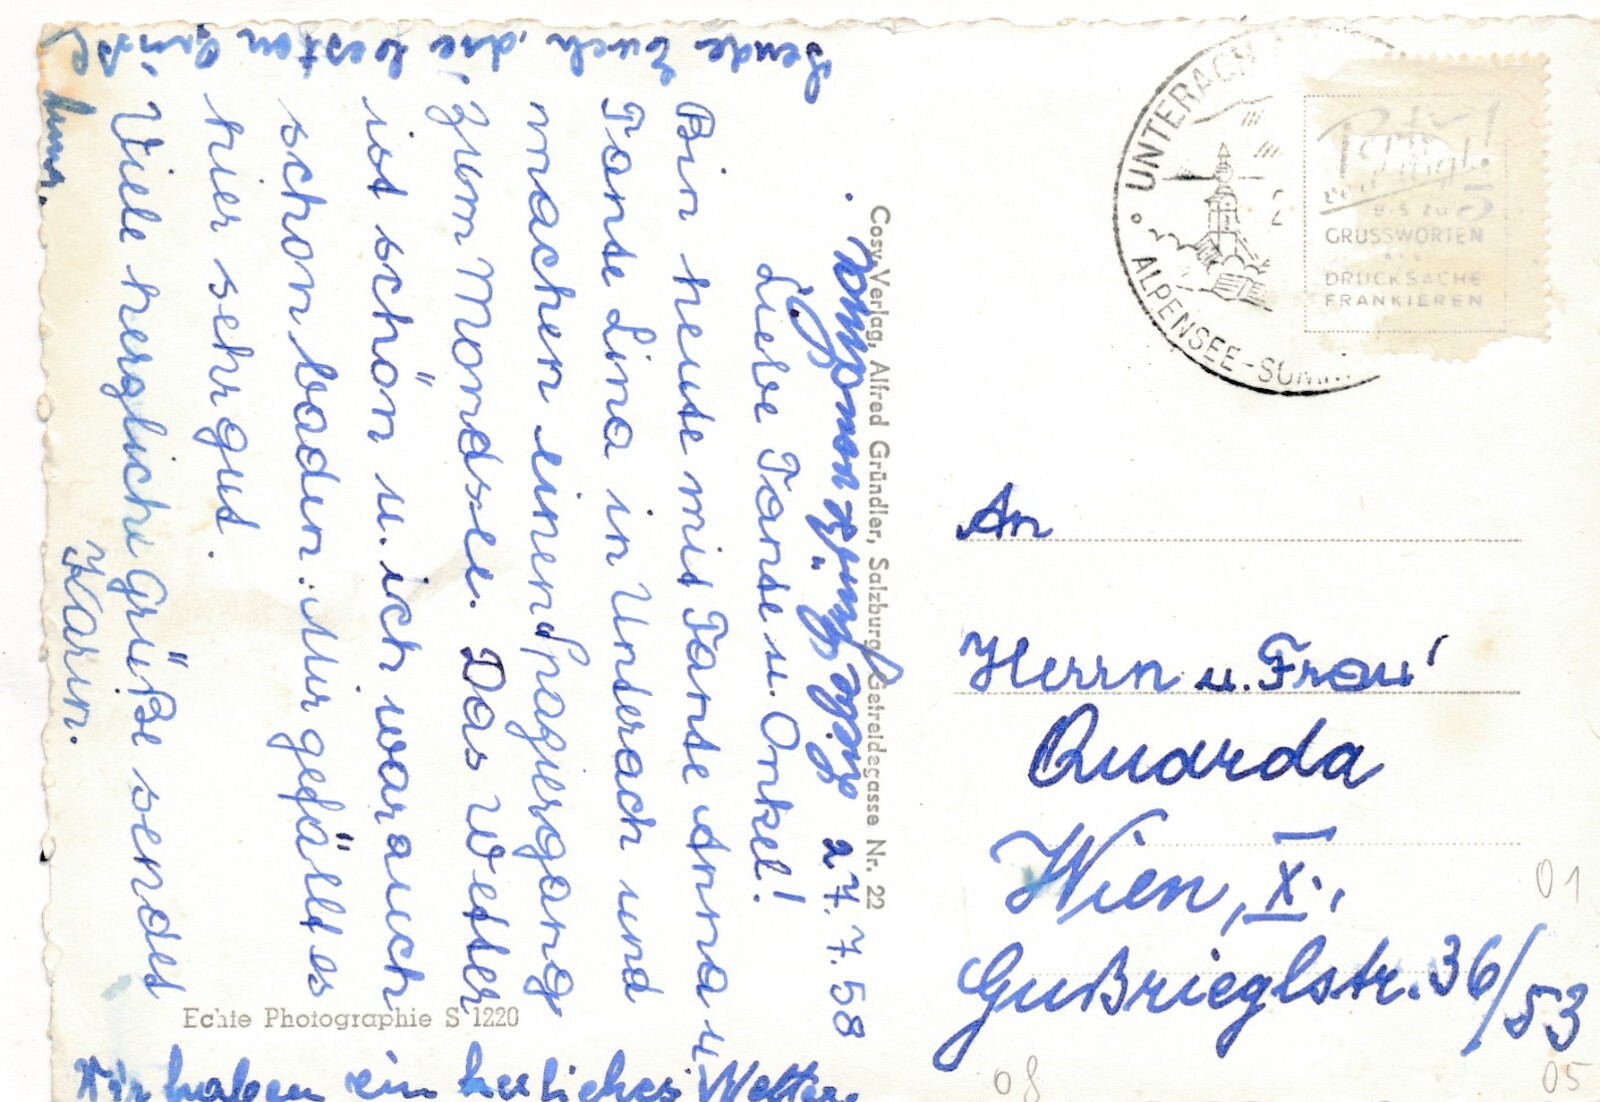 UNTERACH
ALPENSEE-SOMM
Porto
5
BIS ZU 5
GRUSSWORTEN
ALS
DRUCKSACHE
FRANKIEREN
27.7.58
Liebe Tante u. Onkel!
Bin heute mit Tante Anna u.
Tante Lina in Unterach und
machen einen Spaziergang
zum Mondsee. Das Wetter
ist schön u. ich war auch
schon baden. Mir gefällt es
hier sehr gut.
Viele herzliche Grüße sendet
Karin.
Wir haben ein herrliches Wetter
sende Euch die besten Grüße
Cosy-Verlag, Alfred Gründler, Salzburg, Getreidegasse Nr. 22
Echte Photographie S 1220
An
Herrn u. Frau
Quarda
Wien, X.,
Gußrieglstr. 36/53
01
08
05